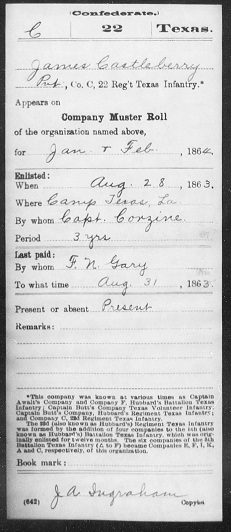 (Confederate.)
C 22 Texas.
James Castleberry
Pvt, Co. C, 22 Reg't Texas Infantry.*
Appears on
Company Muster Roll
of the organization named above,
for Jan & Feb, 1864.
Enlisted:
When Aug. 28, 1863.
Where Camp Texas, La.
By whom Capt. Corzine
Period 3 yrs
Last paid:
By whom F. N. Gary
To what time Aug 31, 1863.
Present or absent Present
Remarks:
*This company was known at various times as Captain
Await's Company and Company F, Hubbard's Battalion Texas
Infantry; Captain Bott's Company Texas Volunteer Infantry;
Captain Bott's Company, Hubbard's Regiment Texas Infantry;
and Company C, 22d Regiment Texas Infantry.
The 22d (also known as Hubbard's) Regiment Texas Infantry
was formed by the addition of four companies to the 5th (also
known as Hubbard's) Battalion Texas Infantry, which was orig-
inally enlisted for twelve months. The six companies of the 5th
Battalion Texas Infantry (A to F) became Companies E, F, I, K,
A and C, respectively, of this organization.
Book mark:
(642) J. A. Ingraham
Copyist.